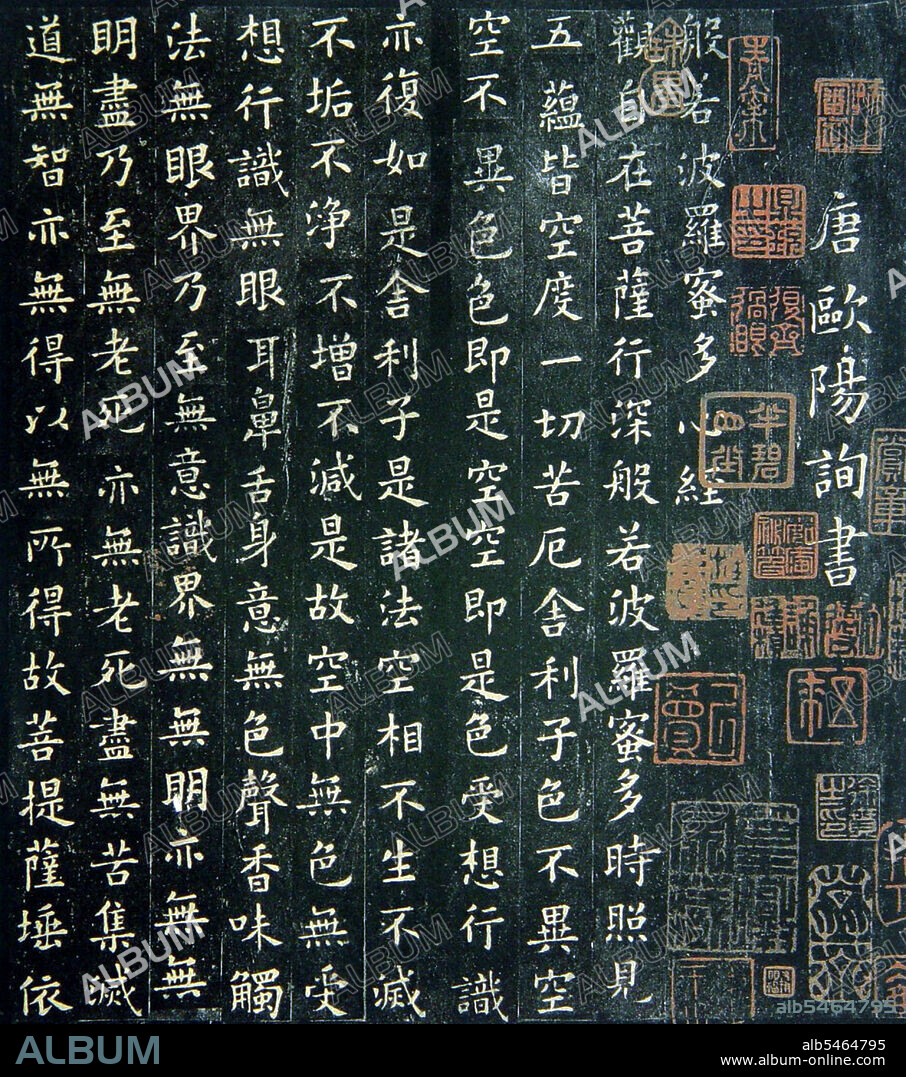 唐歐陽詢書
般若波羅蜜多心經
觀自在菩薩行深般若波羅蜜多時照見
五蘊皆空度一切苦厄舍利子色不異空
空不異色色即是空空即是色受想行識
亦復如是舍利子是諸法空相不生不滅
不垢不淨不增不減是故空中無色無受
想行識無眼耳鼻舌身意無色聲香味觸
法無眼界乃至無意識界無無明亦無無
明盡乃至無老死亦無老死盡無苦集滅
道無智亦無得以無所得故菩提薩埵依
alb5464795
ALBUM
alb5464795
www.album-online.com